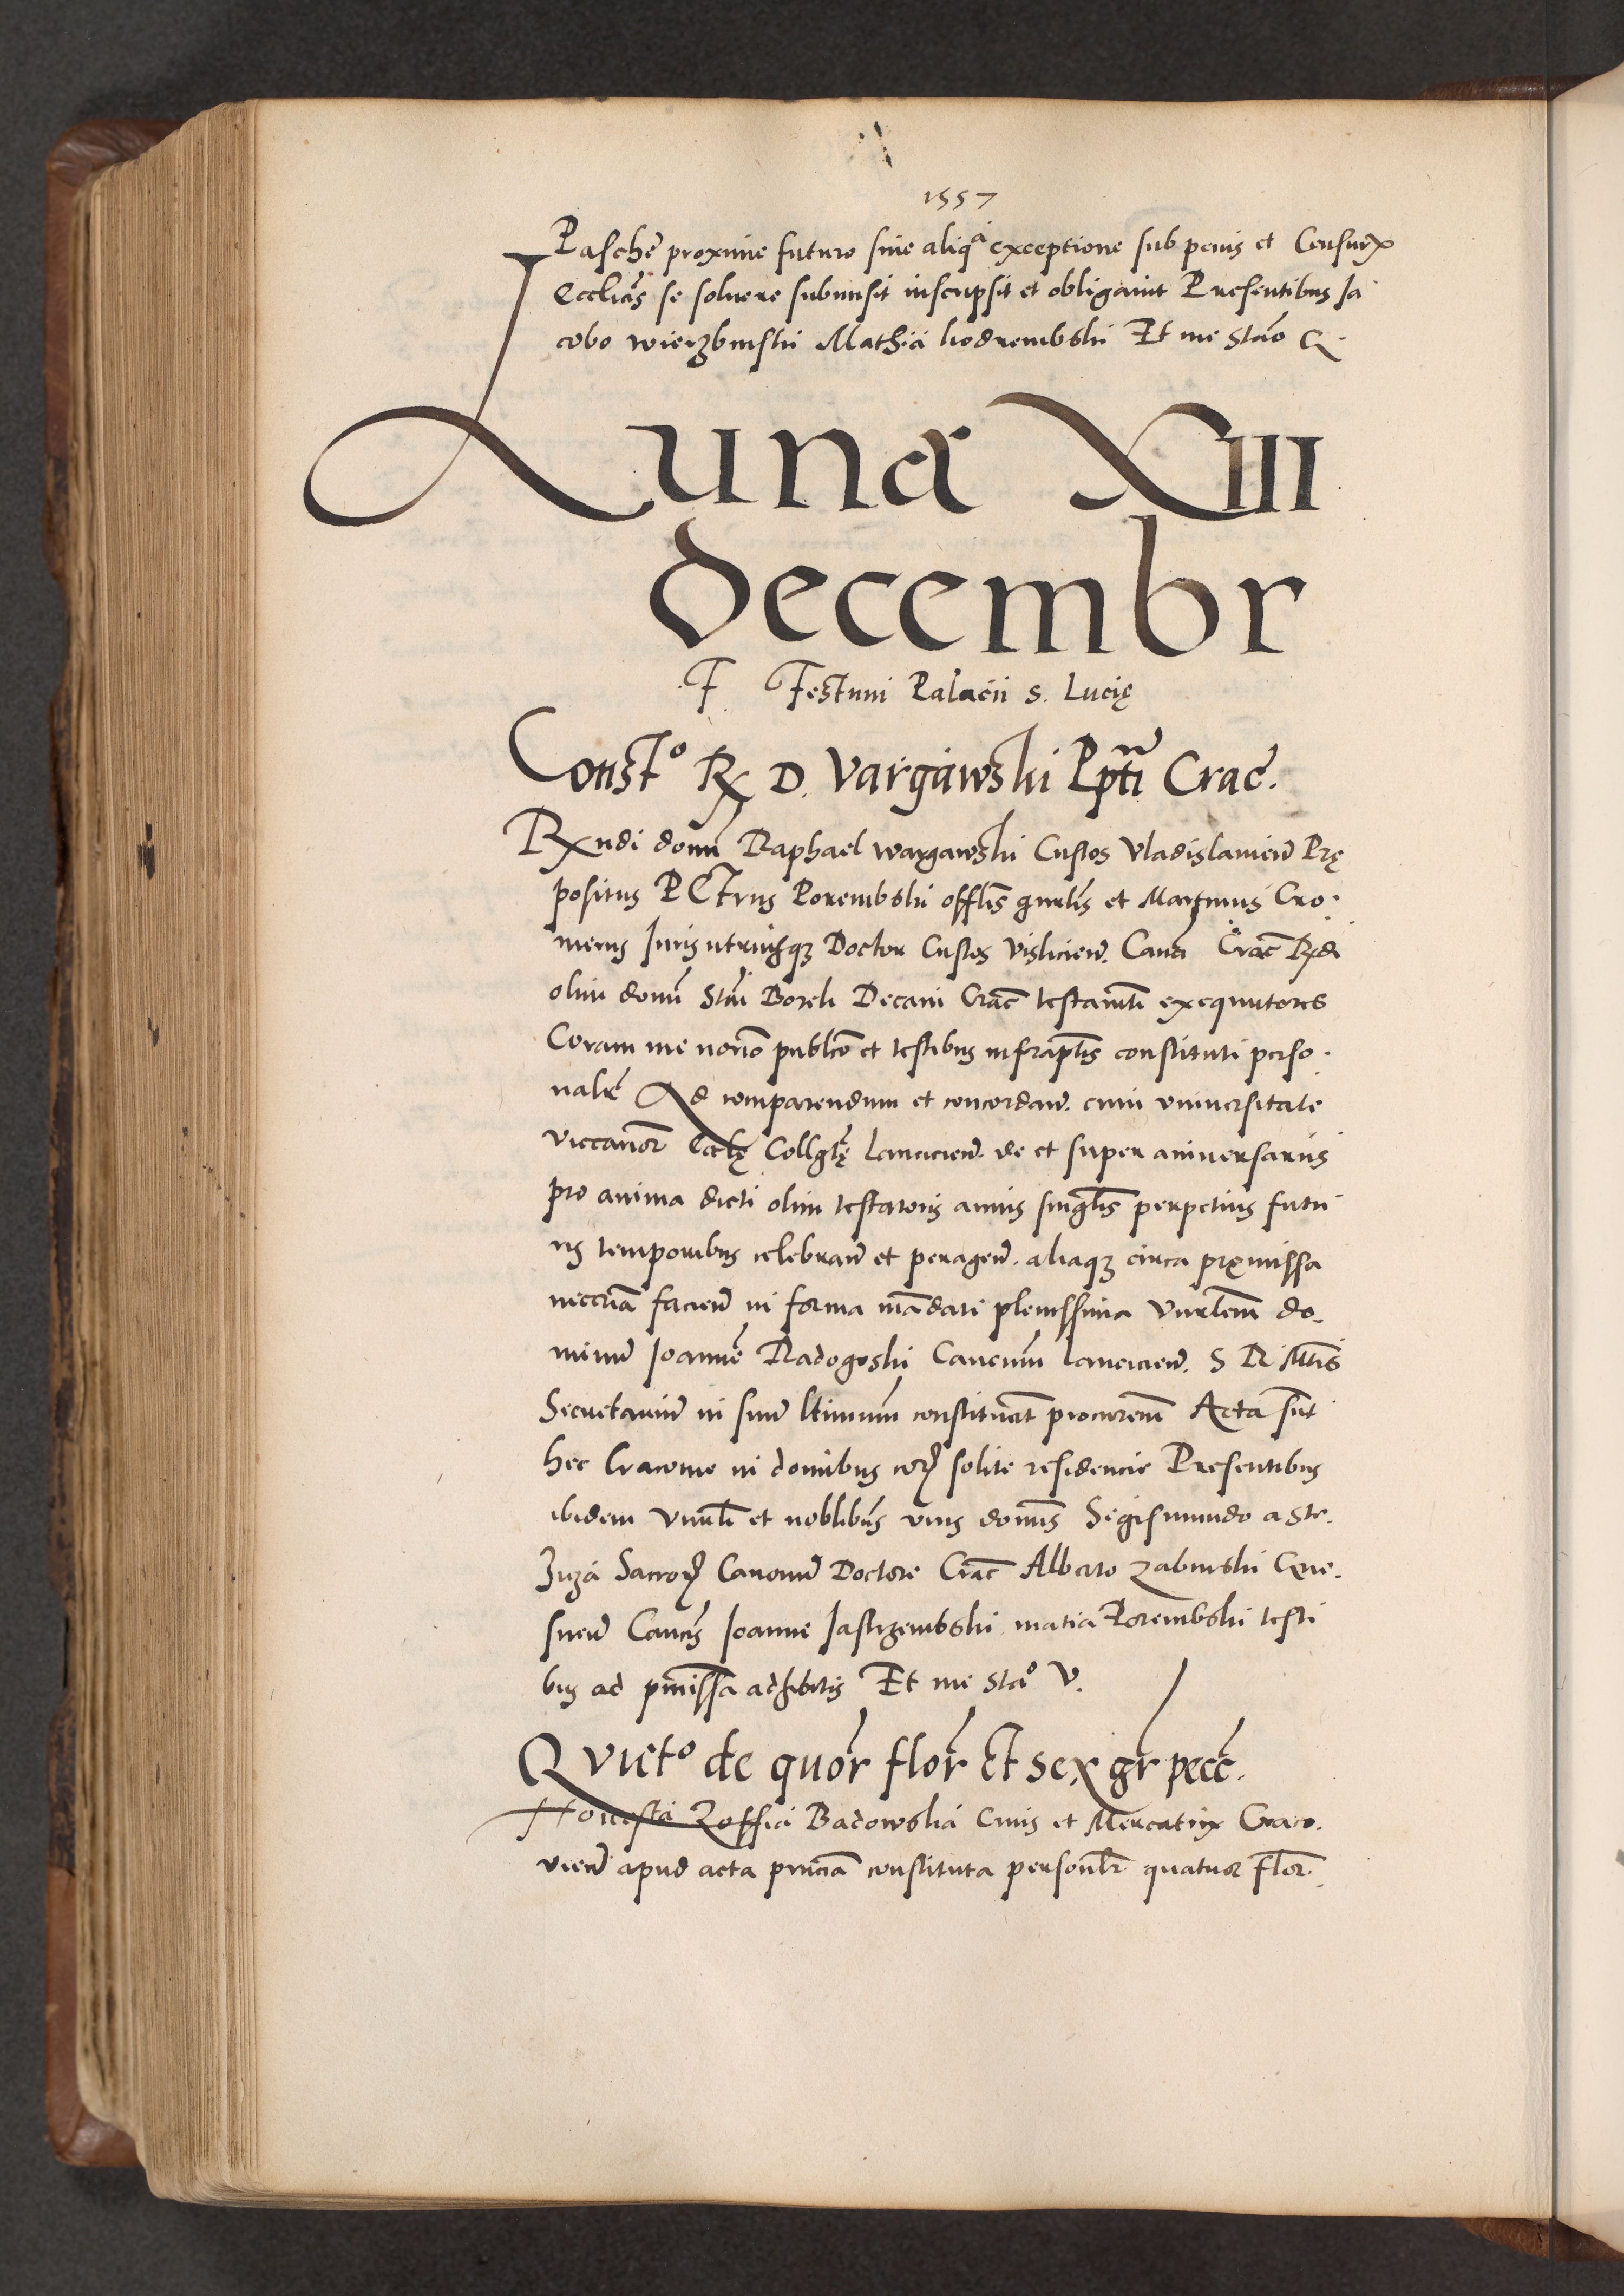 1557
Paschē proxime futuro sine aliqa exceptione sub penis et Censurꝝ
Eccliās se soluere submisit inscripsit et obligauit Presentibus Ja
cobo wierzbinski Mathia kodrembski Et me Stāo Q.
Luna XIII
decembr
F Festum Palacii S. Lucię
Constº Rꝝ D. Vargawski Pptī Crac̄.
Rꝝndi domī Raphael wargawski Custos Vladislauien̄ Prę
positus PEtrus Porembski offlīs gnrlīs et Martinus Cro.
merus Juris utriusqꝫ Doctor Custos Vislicien̄. Canci Crac̄ Rꝝdi
olim domī Stāi Borek Decani Crac̄ testamtī exequutores
Coram me norīo publco et testibus infrapttis constituti perso.
nalrē Ad comparendum et concordan̄. cum vniuersitate
viccarior̄ Eccłę Collgtę Lancicien̄. de et super aniuersariis
pro anima dicti olim testatoris annis singlīs perpetuis futu
ris temporibus celebran̄ et peragen̄. aliaqꝫ circa pręmissa
neccriā facien̄ in forma mādati plenissima Vnrlem̄ do.
minū Joannē Radogoski Cancum̄ lancicien̄. S R Mtīs
Secretariū in suū ltimum̄ constituūt procurem̄ Acta sūt
hec Cracouie in domibus eorꝝ solite residencie Presentibus
ibidem Vnrlī et noblibūs viris domīs Segismundo a Ste.
Zuza Sacrorꝝ Canonū Doctore Crac̄ Alberto Zabinski Gne.
snen̄ Cancīs Joanne Jastrzembski matia Porembski testi
bus ad pmissa adhibitis Et me Staº V.
Quietº de quor̄ flor̄ Et sex gr̄ pecc̄.
Honesta Zoffia Badowska Ciuis et Mercatrix Craco.
vien̄ apud acta prnciā constituta personlr̄ quatuor Flor̄.